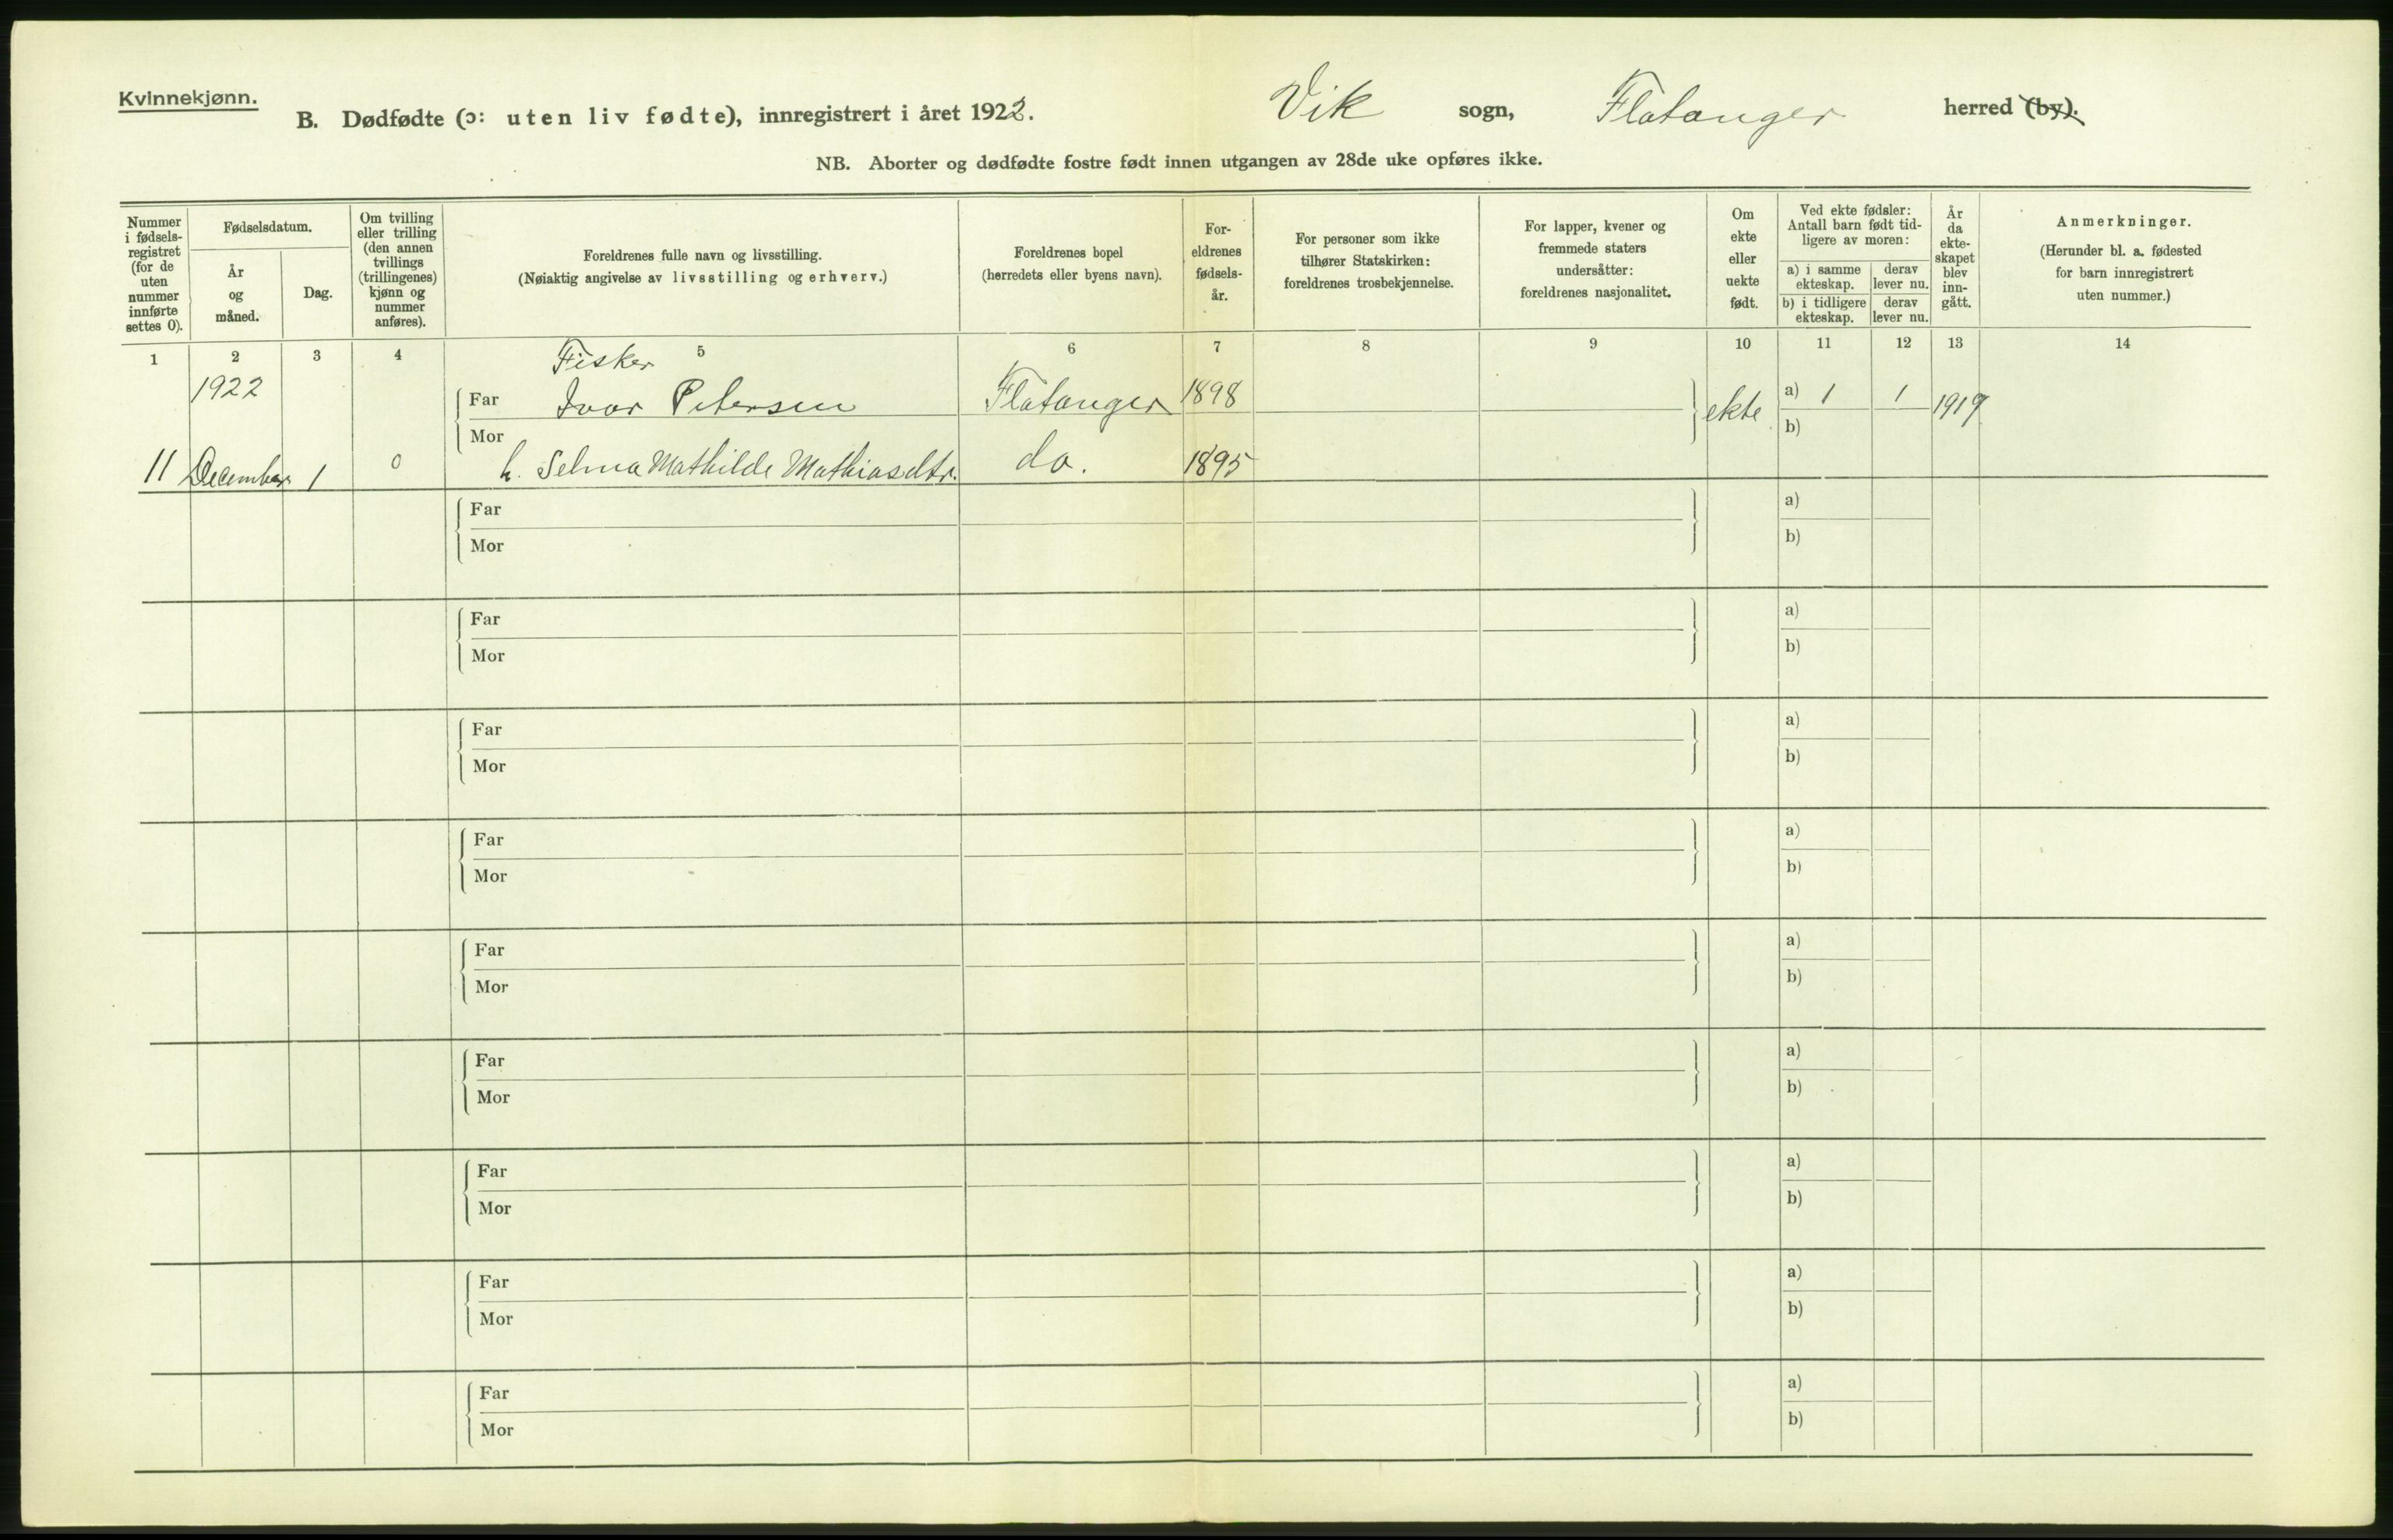 Kvinnekjønn.
B. Dødfødte (ɔ: uten liv fødte), innregistrert i året 1922. Vik sogn, Flatanger herred (by).
NB. Aborter og dødfødte fostre født innen utgangen av 28de uke opføres ikke.
Nummer i fødsels-registret (for de uten nummer innførte settes 0).
Fødselsdatum.
År og måned.
Dag.
Om tvilling eller trilling (den annen tvillings (trillingenes) kjønn og nummer anføres).
Foreldrenes fulle navn og livsstilling.
(Nøiaktig angivelse av livsstilling og erhverv.)
Foreldrenes bopel
(herredets eller byens navn).
For-eldrenes fødsels-år.
For personer som ikke tilhører Statskirken: foreldrenes trosbekjennelse.
For lapper, kvener og fremmede staters undersåtter: foreldrenes nasjonalitet.
Om ekte eller uekte født.
Ved ekte fødsler: Antall barn født tid-ligere av moren:
a) i samme ekteskap.
derav lever nu.
b) i tidligere ekteskap.
derav lever nu.
År da ekte-skapet blev inn-gått.
Anmerkninger.
(Herunder bl. a. fødested for barn innregistrert uten nummer.)
1 2 3 4 5 6 7 8 9 10 11 12 13 14
Fisker
1922 Far Ivar Petersen Flatanger 1898 ekte a) 1 1 1919
Mor b)
11 December 1 0 h. Selma Mathilde Mathiasdtr. do. 1895
Far a)
Mor b)
Far a)
Mor b)
Far a)
Mor b)
Far a)
Mor b)
Far a)
Mor b)
Far a)
Mor b)
Far a)
Mor b)
Far a)
Mor b)
Far a)
Mor b)